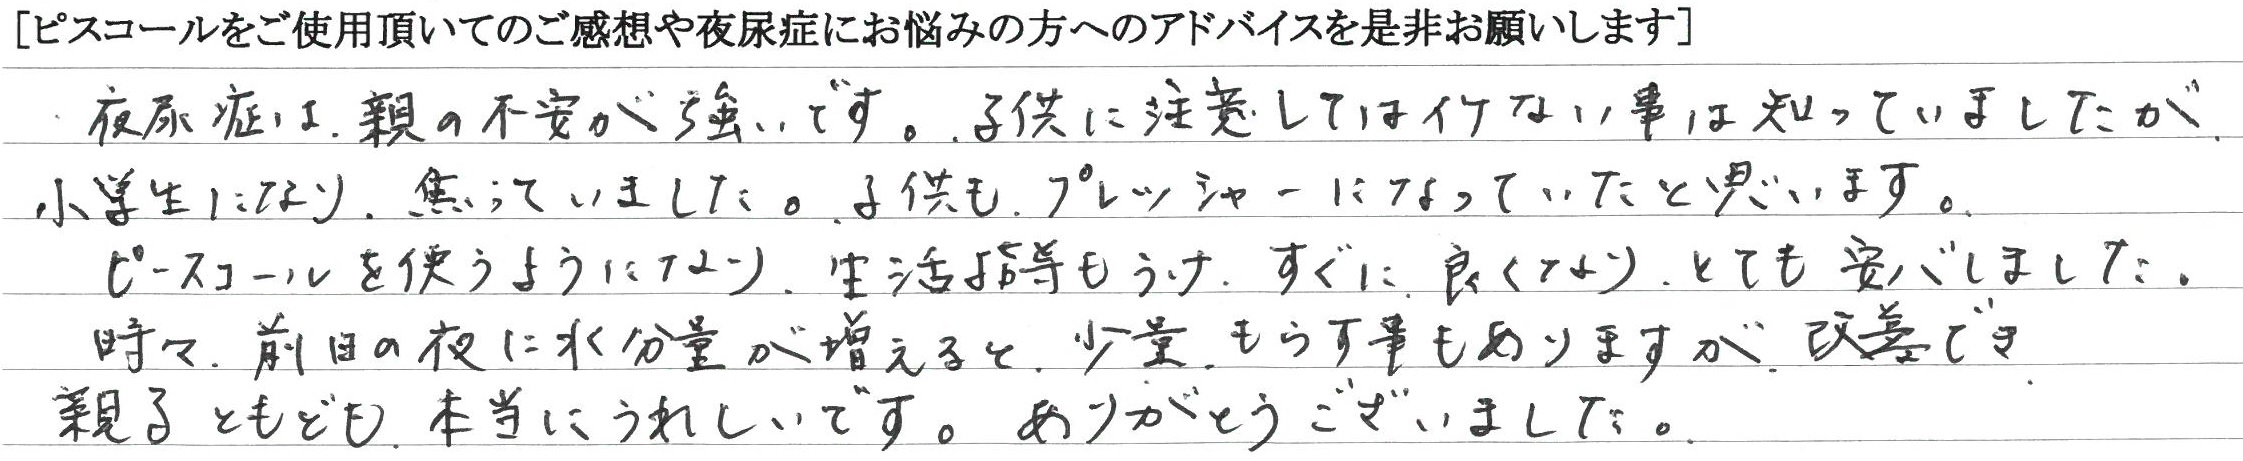 [ピスコールをご使用頂いてのご感想や夜尿症にお悩みの方へのアドバイスを是非お願いします]
夜尿症は、親の不安が強いです。子供に注意してはイケない事は知っていましたが、
小学生になり、焦っていました。子供も、プレッシャーになっていたと思います。
ピースコールを使うようになり、生活指導もうけ、すぐに良くなり、とても安心しました。
時々、前日の夜に水分量が増えると、少量、もらす事もありますが、改善でき、
親子ともども、本当にうれしいです。ありがとうございました。